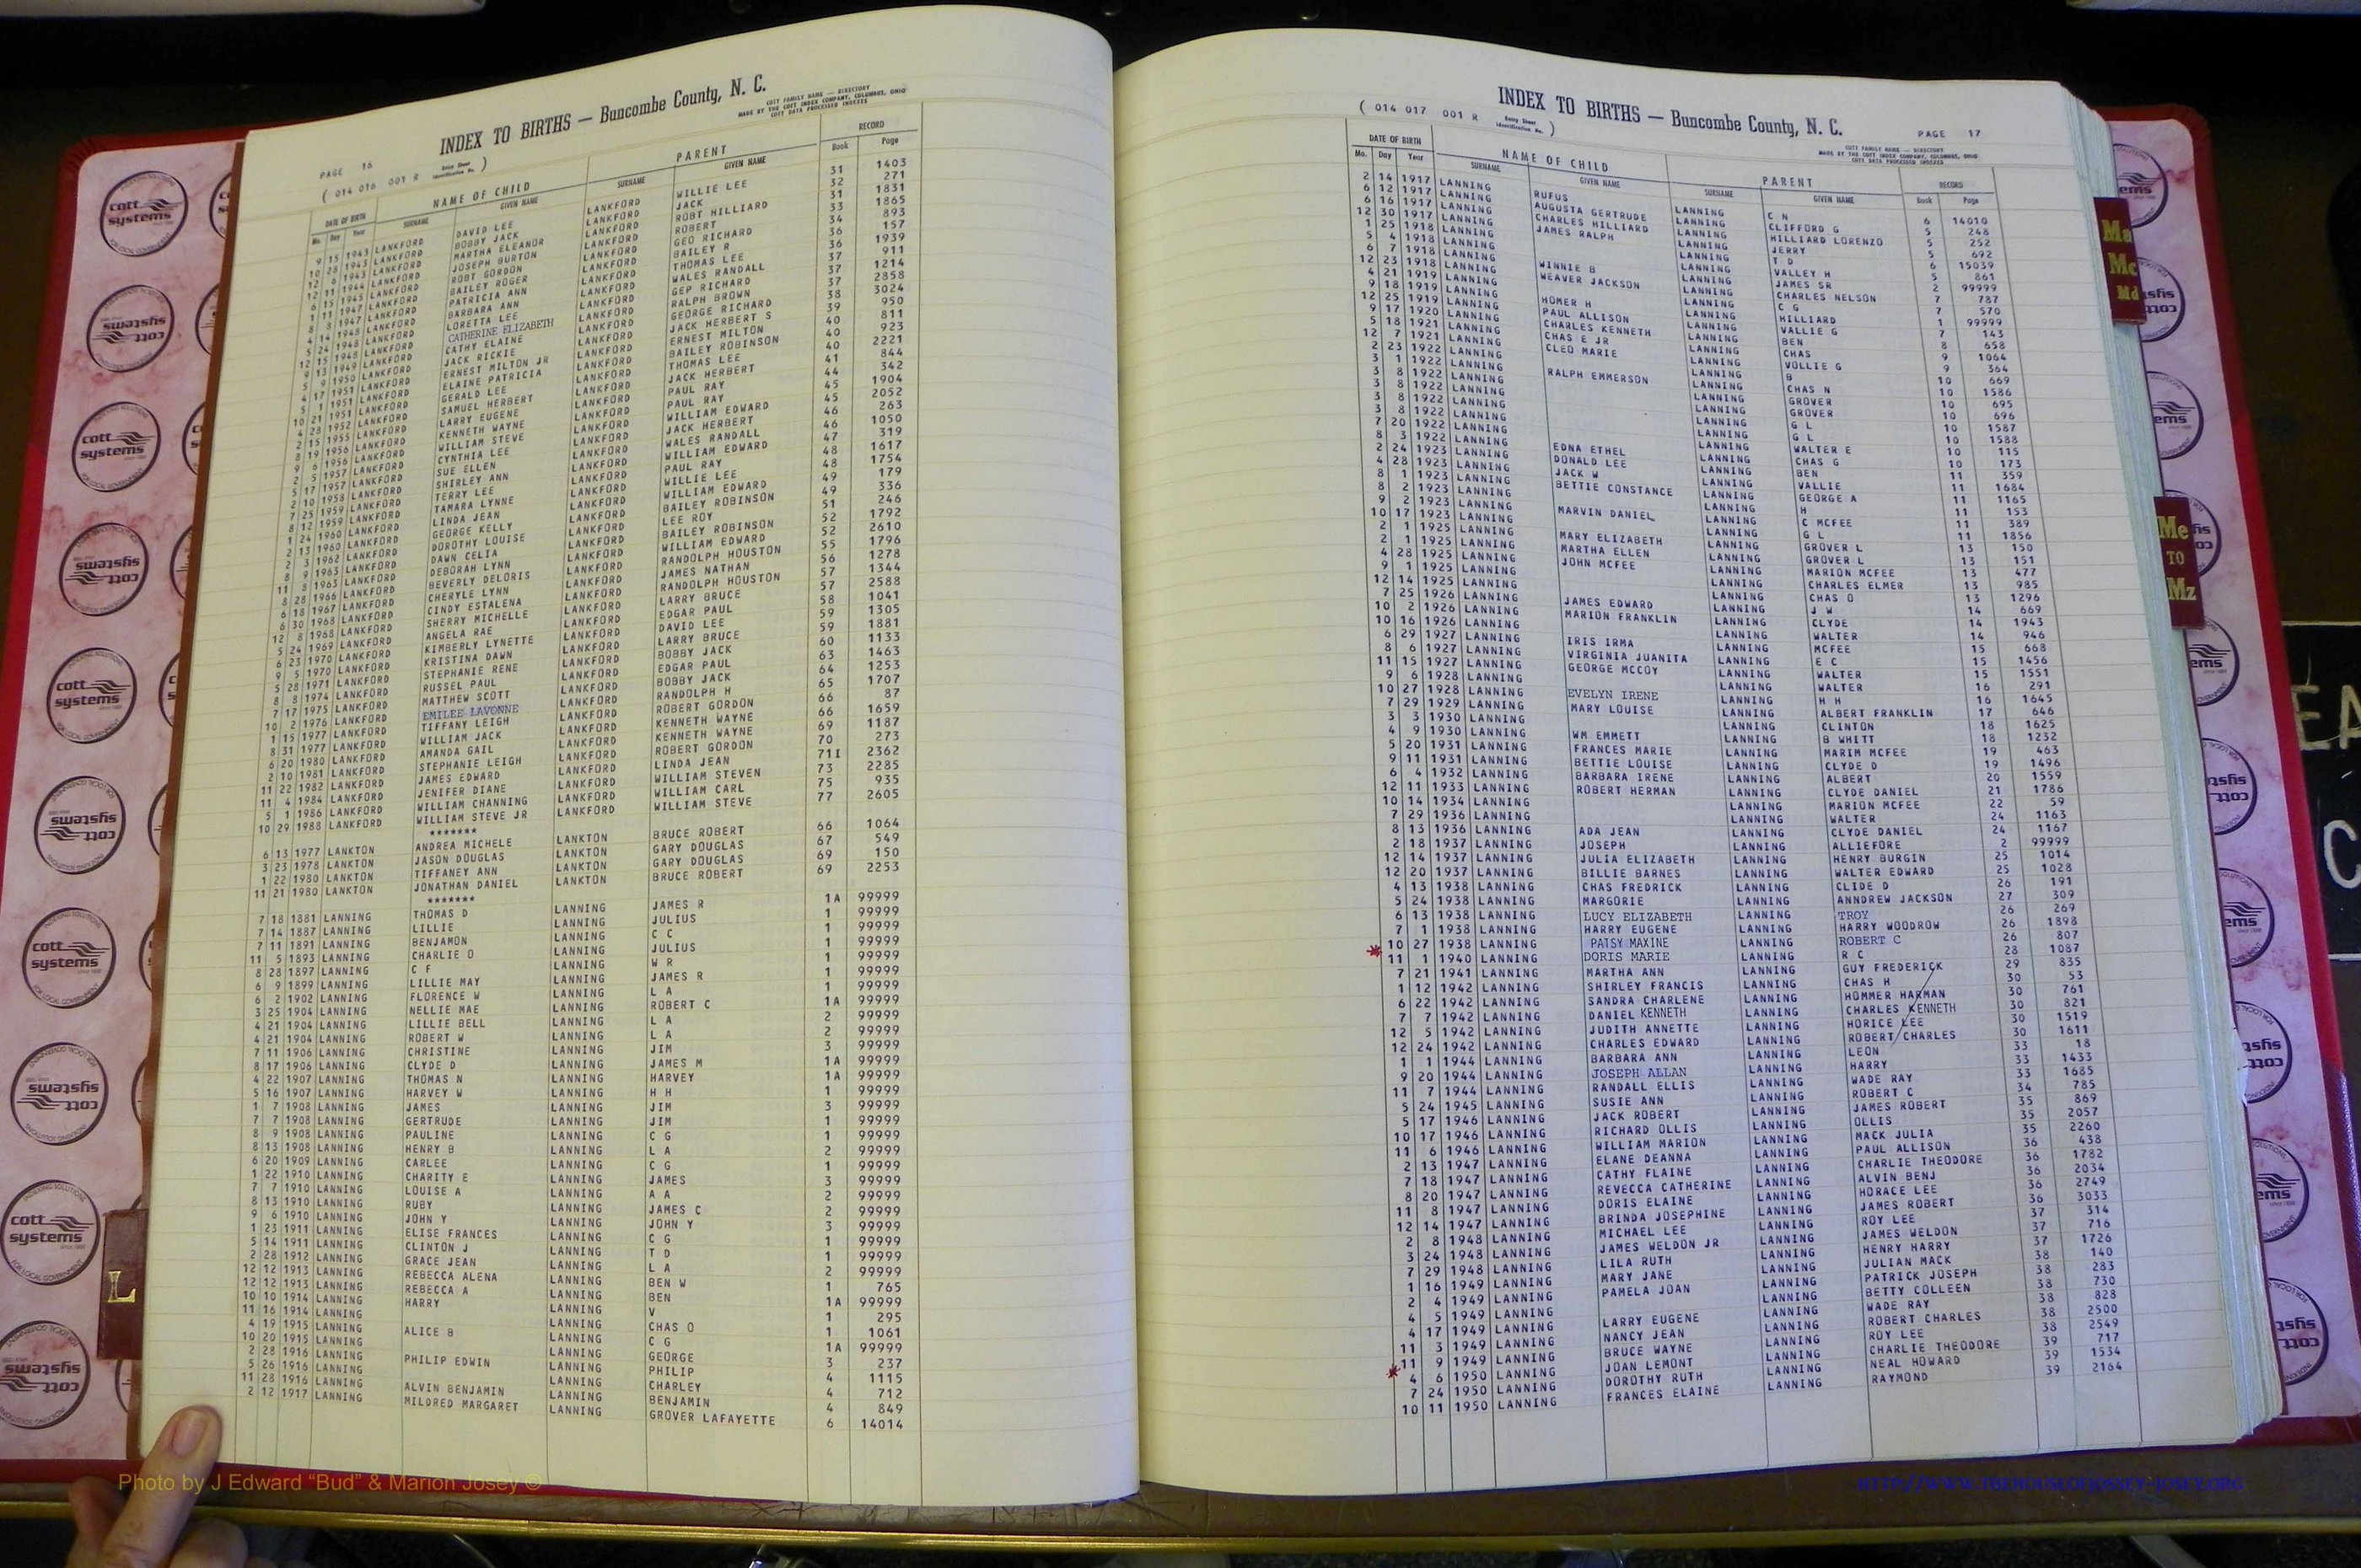 INDEX TO BIRTHS — Buncombe County, N. C.
COTT FAMILY NAME — DIRECTORY
MADE BY THE COTT INDEX COMPANY, COLUMBUS, OHIO
COTT DATA PROCESSED INDEXES
PAGE 16
( 014 016 001 R Entry Sheet Identification No. )
DATE OF BIRTH NAME OF CHILD PARENT RECORD
Mo. Day Year SURNAME GIVEN NAME SURNAME GIVEN NAME Book Page
9 15 1943 LANKFORD DAVID LEE LANKFORD WILLIE LEE 31 1403
10 28 1943 LANKFORD BOBBY JACK LANKFORD JACK 32 271
12 6 1943 LANKFORD MARTHA ELEANOR LANKFORD ROBT HILLIARD 31 1831
12 11 1944 LANKFORD JOSEPH BURTON LANKFORD ROBERT 33 1865
6 15 1945 LANKFORD ROBT GORDON LANKFORD GEO RICHARD 34 893
1 11 1947 LANKFORD BAILEY ROGER LANKFORD BAILEY R 36 157
8 8 1947 LANKFORD PATRICIA ANN LANKFORD THOMAS LEE 36 1939
4 14 1948 LANKFORD BARBARA ANN LANKFORD WALES RANDALL 37 911
5 24 1948 LANKFORD LORETTA LEE LANKFORD GEP RICHARD 37 1214
12 15 1948 LANKFORD CATHERINE ELIZABETH LANKFORD RALPH BROWN 37 2858
9 13 1949 LANKFORD CATHY ELAINE LANKFORD GEORGE RICHARD 38 3024
5 9 1950 LANKFORD JACK RICKIE LANKFORD JACK HERBERT S 39 950
4 17 1951 LANKFORD ERNEST MILTON JR LANKFORD ERNEST MILTON 40 811
5 1 1951 LANKFORD ELAINE PATRICIA LANKFORD BAILEY ROBINSON 40 923
10 21 1951 LANKFORD GERALD LEE LANKFORD THOMAS LEE 40 2221
4 28 1952 LANKFORD SAMUEL HERBERT LANKFORD JACK HERBERT 41 844
2 15 1955 LANKFORD LARRY EUGENE LANKFORD PAUL RAY 44 342
8 19 1956 LANKFORD KENNETH WAYNE LANKFORD PAUL RAY 45 1904
9 6 1956 LANKFORD WILLIAM STEVE LANKFORD WILLIAM EDWARD 45 2052
2 5 1957 LANKFORD CYNTHIA LEE LANKFORD JACK HERBERT 46 263
5 17 1957 LANKFORD SUE ELLEN LANKFORD WALES RANDALL 46 1050
2 10 1958 LANKFORD SHIRLEY ANN LANKFORD WILLIAM EDWARD 47 319
7 25 1959 LANKFORD TERRY LEE LANKFORD PAUL RAY 48 1617
8 12 1959 LANKFORD TAMARA LYNNE LANKFORD WILLIE LEE 48 1754
1 24 1960 LANKFORD LINDA JEAN LANKFORD WILLIAM EDWARD 49 179
2 13 1960 LANKFORD GEORGE KELLY LANKFORD BAILEY ROBINSON 49 336
2 3 1962 LANKFORD DOROTHY LOUISE LANKFORD LEE ROY 51 246
8 9 1963 LANKFORD DAWN CELIA LANKFORD BAILEY ROBINSON 52 1792
11 8 1963 LANKFORD DEBORAH LYNN LANKFORD WILLIAM EDWARD 52 2610
8 28 1966 LANKFORD BEVERLY DELORIS LANKFORD RANDOLPH HOUSTON 55 1796
6 18 1967 LANKFORD CHERYLE LYNN LANKFORD JAMES NATHAN 56 1278
6 30 1968 LANKFORD CINDY ESTALENA LANKFORD RANDOLPH HOUSTON 57 1344
12 8 1968 LANKFORD SHERRY MICHELLE LANKFORD LARRY BRUCE 57 2588
5 24 1969 LANKFORD ANGELA RAE LANKFORD EDGAR PAUL 58 1041
6 23 1970 LANKFORD KIMBERLY LYNETTE LANKFORD DAVID LEE 59 1305
9 5 1970 LANKFORD KRISTINA DAWN LANKFORD LARRY BRUCE 59 1881
5 28 1971 LANKFORD STEPHANIE RENE LANKFORD BOBBY JACK 60 1133
8 8 1974 LANKFORD RUSSEL PAUL LANKFORD EDGAR PAUL 63 1463
7 17 1975 LANKFORD MATTHEW SCOTT LANKFORD BOBBY JACK 64 1253
10 2 1976 LANKFORD EMILEE LAVONNE LANKFORD RANDOLPH H 65 1707
1 15 1977 LANKFORD TIFFANY LEIGH LANKFORD ROBERT GORDON 66 87
8 31 1977 LANKFORD WILLIAM JACK LANKFORD KENNETH WAYNE 66 1659
6 20 1980 LANKFORD AMANDA GAIL LANKFORD KENNETH WAYNE 69 1187
2 10 1981 LANKFORD STEPHANIE LEIGH LANKFORD ROBERT GORDON 70 273
11 22 1982 LANKFORD JAMES EDWARD LANKFORD LINDA JEAN 71I 2362
11 4 1984 LANKFORD JENIFER DIANE LANKFORD WILLIAM STEVEN 73 2285
5 1 1986 LANKFORD WILLIAM CHANNING LANKFORD WILLIAM CARL 75 935
10 29 1988 LANKFORD WILLIAM STEVE JR LANKFORD WILLIAM STEVE 77 2605
*******
6 13 1977 LANKTON ANDREA MICHELE LANKTON BRUCE ROBERT 66 1064
3 23 1978 LANKTON JASON DOUGLAS LANKTON GARY DOUGLAS 67 549
1 22 1980 LANKTON TIFFANEY ANN LANKTON GARY DOUGLAS 69 150
11 21 1980 LANKTON JONATHAN DANIEL LANKTON BRUCE ROBERT 69 2253
*******
7 18 1881 LANNING THOMAS D LANNING JAMES R 1A 99999
7 14 1887 LANNING LILLIE LANNING JULIUS 1 99999
7 11 1891 LANNING BENJAMON LANNING C C 1 99999
11 5 1893 LANNING CHARLIE O LANNING JULIUS 1 99999
8 28 1897 LANNING C F LANNING W R 1 99999
6 9 1899 LANNING LILLIE MAY LANNING JAMES R 1 99999
6 2 1902 LANNING FLORENCE W LANNING L A 1 99999
3 25 1904 LANNING NELLIE MAE LANNING ROBERT C 1A 99999
4 21 1904 LANNING LILLIE BELL LANNING L A 2 99999
4 21 1904 LANNING ROBERT W LANNING L A 2 99999
7 11 1906 LANNING CHRISTINE LANNING JIM 3 99999
8 17 1906 LANNING CLYDE D LANNING JAMES M 1A 99999
4 22 1907 LANNING THOMAS N LANNING HARVEY 1A 99999
5 16 1907 LANNING HARVEY W LANNING H H 1 99999
1 7 1908 LANNING JAMES LANNING JIM 3 99999
7 7 1908 LANNING GERTRUDE LANNING JIM 1 99999
8 9 1908 LANNING PAULINE LANNING C G 1 99999
8 13 1908 LANNING HENRY B LANNING L A 2 99999
6 20 1909 LANNING CARLEE LANNING C G 1 99999
1 22 1910 LANNING CHARITY E LANNING JAMES 3 99999
7 7 1910 LANNING LOUISE A LANNING A A 2 99999
8 13 1910 LANNING RUBY LANNING JAMES C 2 99999
9 6 1910 LANNING JOHN Y LANNING JOHN Y 3 99999
1 23 1911 LANNING ELISE FRANCES LANNING C G 1 99999
5 14 1911 LANNING CLINTON J LANNING T D 1 99999
2 28 1912 LANNING GRACE JEAN LANNING L A 2 99999
12 12 1913 LANNING REBECCA ALENA LANNING BEN W 1 765
12 12 1913 LANNING REBECCA A LANNING BEN 1A 99999
10 10 1914 LANNING HARRY LANNING V 1 295
11 16 1914 LANNING LANNING CHAS O 1 1061
4 19 1915 LANNING ALICE B LANNING C G 1A 99999
10 20 1915 LANNING LANNING GEORGE 3 237
2 28 1916 LANNING PHILIP EDWIN LANNING PHILIP 4 1115
5 26 1916 LANNING LANNING CHARLEY 4 712
11 28 1916 LANNING ALVIN BENJAMIN LANNING BENJAMIN 4 849
2 12 1917 LANNING MILDRED MARGARET LANNING GROVER LAFAYETTE 6 14014
INDEX TO BIRTHS — Buncombe County, N. C.
( 014 017 001 R Entry Sheet Identification No. )
PAGE 17
COTT FAMILY NAME — DIRECTORY
MADE BY THE COTT INDEX COMPANY, COLUMBUS, OHIO
COTT DATA PROCESSED INDEXES
DATE OF BIRTH NAME OF CHILD PARENT RECORD
Mo. Day Year SURNAME GIVEN NAME SURNAME GIVEN NAME Book Page
2 14 1917 LANNING RUFUS LANNING C N 6 14010
6 12 1917 LANNING AUGUSTA GERTRUDE LANNING CLIFFORD G 5 248
6 16 1917 LANNING CHARLES HILLIARD LANNING HILLIARD LORENZO 5 252
12 30 1917 LANNING JAMES RALPH LANNING JERRY 5 692
1 25 1918 LANNING LANNING T D 6 15039
5 4 1918 LANNING LANNING VALLEY H 5 861
6 7 1918 LANNING WINNIE B LANNING JAMES SR 2 99999
12 23 1918 LANNING WEAVER JACKSON LANNING CHARLES NELSON 7 787
4 21 1919 LANNING LANNING C G 7 570
9 18 1919 LANNING HOMER H LANNING HILLIARD 1 99999
12 25 1919 LANNING PAUL ALLISON LANNING VALLIE G 7 143
9 17 1920 LANNING CHARLES KENNETH LANNING BEN 8 658
5 18 1921 LANNING CHAS E JR LANNING CHAS 9 1064
12 7 1921 LANNING CLEO MARIE LANNING VOLLIE G 9 364
2 23 1922 LANNING LANNING B 10 669
3 1 1922 LANNING RALPH EMMERSON LANNING CHAS N 10 1586
3 8 1922 LANNING LANNING GROVER 10 695
3 8 1922 LANNING LANNING GROVER 10 696
3 8 1922 LANNING LANNING G L 10 1587
3 8 1922 LANNING LANNING G L 10 1588
7 20 1922 LANNING LANNING WALTER E 10 115
8 3 1922 LANNING EDNA ETHEL LANNING CHAS G 10 173
2 24 1923 LANNING DONALD LEE LANNING BEN 11 359
4 28 1923 LANNING JACK W LANNING VALLIE 11 1684
8 1 1923 LANNING BETTIE CONSTANCE LANNING GEORGE A 11 1165
8 2 1923 LANNING LANNING H 11 153
9 2 1923 LANNING MARVIN DANIEL LANNING C MCFEE 11 389
10 17 1923 LANNING LANNING G L 11 1856
2 1 1925 LANNING MARY ELIZABETH LANNING GROVER L 13 150
2 1 1925 LANNING MARTHA ELLEN LANNING GROVER L 13 151
4 28 1925 LANNING JOHN MCFEE LANNING MARION MCFEE 13 477
9 1 1925 LANNING LANNING CHARLES ELMER 13 985
12 14 1925 LANNING LANNING CHAS O 13 1296
7 25 1926 LANNING JAMES EDWARD LANNING J W 14 669
10 2 1926 LANNING MARION FRANKLIN LANNING CLYDE 14 1943
10 16 1926 LANNING LANNING WALTER 14 946
6 29 1927 LANNING IRIS IRMA LANNING MCFEE 15 668
8 6 1927 LANNING VIRGINIA JUANITA LANNING E C 15 1456
11 15 1927 LANNING GEORGE MCCOY LANNING WALTER 15 1551
9 6 1928 LANNING LANNING WALTER 16 291
10 27 1928 LANNING EVELYN IRENE LANNING H H 16 1645
7 29 1929 LANNING MARY LOUISE LANNING ALBERT FRANKLIN 17 646
3 3 1930 LANNING LANNING CLINTON 18 1625
4 9 1930 LANNING WM EMMETT LANNING B WHITT 18 1232
5 20 1931 LANNING FRANCES MARIE LANNING MARIM MCFEE 19 463
9 11 1931 LANNING BETTIE LOUISE LANNING CLYDE D 19 1496
6 4 1932 LANNING BARBARA IRENE LANNING ALBERT 20 1559
12 11 1933 LANNING ROBERT HERMAN LANNING CLYDE DANIEL 21 1786
10 14 1934 LANNING LANNING MARION MCFEE 22 59
7 29 1936 LANNING LANNING WALTER 24 1163
8 13 1936 LANNING ADA JEAN LANNING CLYDE DANIEL 24 1167
2 18 1937 LANNING JOSEPH LANNING ALLIEFORE 2 99999
12 14 1937 LANNING JULIA ELIZABETH LANNING HENRY BURGIN 25 1014
12 20 1937 LANNING BILLIE BARNES LANNING WALTER EDWARD 25 1028
4 13 1938 LANNING CHAS FREDRICK LANNING CLIDE D 26 191
5 24 1938 LANNING MARGORIE LANNING ANNDREW JACKSON 27 309
6 13 1938 LANNING LUCY ELIZABETH LANNING TROY 26 269
7 1 1938 LANNING HARRY EUGENE LANNING HARRY WOODROW 26 1898
* 10 27 1938 LANNING PATSY MAXINE LANNING ROBERT C 26 807
11 1 1940 LANNING DORIS MARIE LANNING R C 28 1087
7 21 1941 LANNING MARTHA ANN LANNING GUY FREDERICK 29 835
1 12 1942 LANNING SHIRLEY FRANCIS LANNING CHAS H 30 53
6 22 1942 LANNING SANDRA CHARLENE LANNING HOMMER HARMAN 30 761
7 7 1942 LANNING DANIEL KENNETH LANNING CHARLES KENNETH 30 821
12 5 1942 LANNING JUDITH ANNETTE LANNING HORICE LEE 30 1519
12 24 1942 LANNING CHARLES EDWARD LANNING ROBERT CHARLES 30 1611
1 1 1944 LANNING BARBARA ANN LANNING LEON 33 18
9 20 1944 LANNING JOSEPH ALLAN LANNING HARRY 33 1433
11 7 1944 LANNING RANDALL ELLIS LANNING WADE RAY 33 1685
5 24 1945 LANNING SUSIE ANN LANNING ROBERT C 34 785
5 17 1946 LANNING JACK ROBERT LANNING JAMES ROBERT 35 869
10 17 1946 LANNING RICHARD OLLIS LANNING OLLIS 35 2057
11 6 1946 LANNING WILLIAM MARION LANNING MACK JULIA 35 2260
2 13 1947 LANNING ELANE DEANNA LANNING PAUL ALLISON 36 438
7 18 1947 LANNING CATHY FLAINE LANNING CHARLIE THEODORE 36 1782
8 20 1947 LANNING REVECCA CATHERINE LANNING ALVIN BENJ 36 2034
11 8 1947 LANNING DORIS ELAINE LANNING HORACE LEE 36 2749
12 14 1947 LANNING BRINDA JOSEPHINE LANNING JAMES ROBERT 36 3033
2 8 1948 LANNING MICHAEL LEE LANNING ROY LEE 37 314
3 24 1948 LANNING JAMES WELDON JR LANNING JAMES WELDON 37 716
7 29 1948 LANNING LILA RUTH LANNING HENRY HARRY 37 1726
1 16 1949 LANNING MARY JANE LANNING JULIAN MACK 38 140
2 4 1949 LANNING PAMELA JOAN LANNING PATRICK JOSEPH 38 283
4 5 1949 LANNING LANNING BETTY COLLEEN 38 730
4 17 1949 LANNING LARRY EUGENE LANNING WADE RAY 38 828
11 3 1949 LANNING NANCY JEAN LANNING ROBERT CHARLES 38 2500
11 9 1949 LANNING BRUCE WAYNE LANNING ROY LEE 38 2549
* 4 6 1950 LANNING JOAN LEMONT LANNING CHARLIE THEODORE 39 717
7 24 1950 LANNING DOROTHY RUTH LANNING NEAL HOWARD 39 1534
10 11 1950 LANNING FRANCES ELAINE LANNING RAYMOND 39 2164
L
Ma
Mc
Md
Me
TO
Mz
cott systems
INDEXING SOLUTIONS
FOR LOCAL GOVERNMENT
Photo by J Edward “Bud” & Marion Josey ©
HTTP://WWW.THEHOUSEOFJOSSEY-JOSEY.ORG